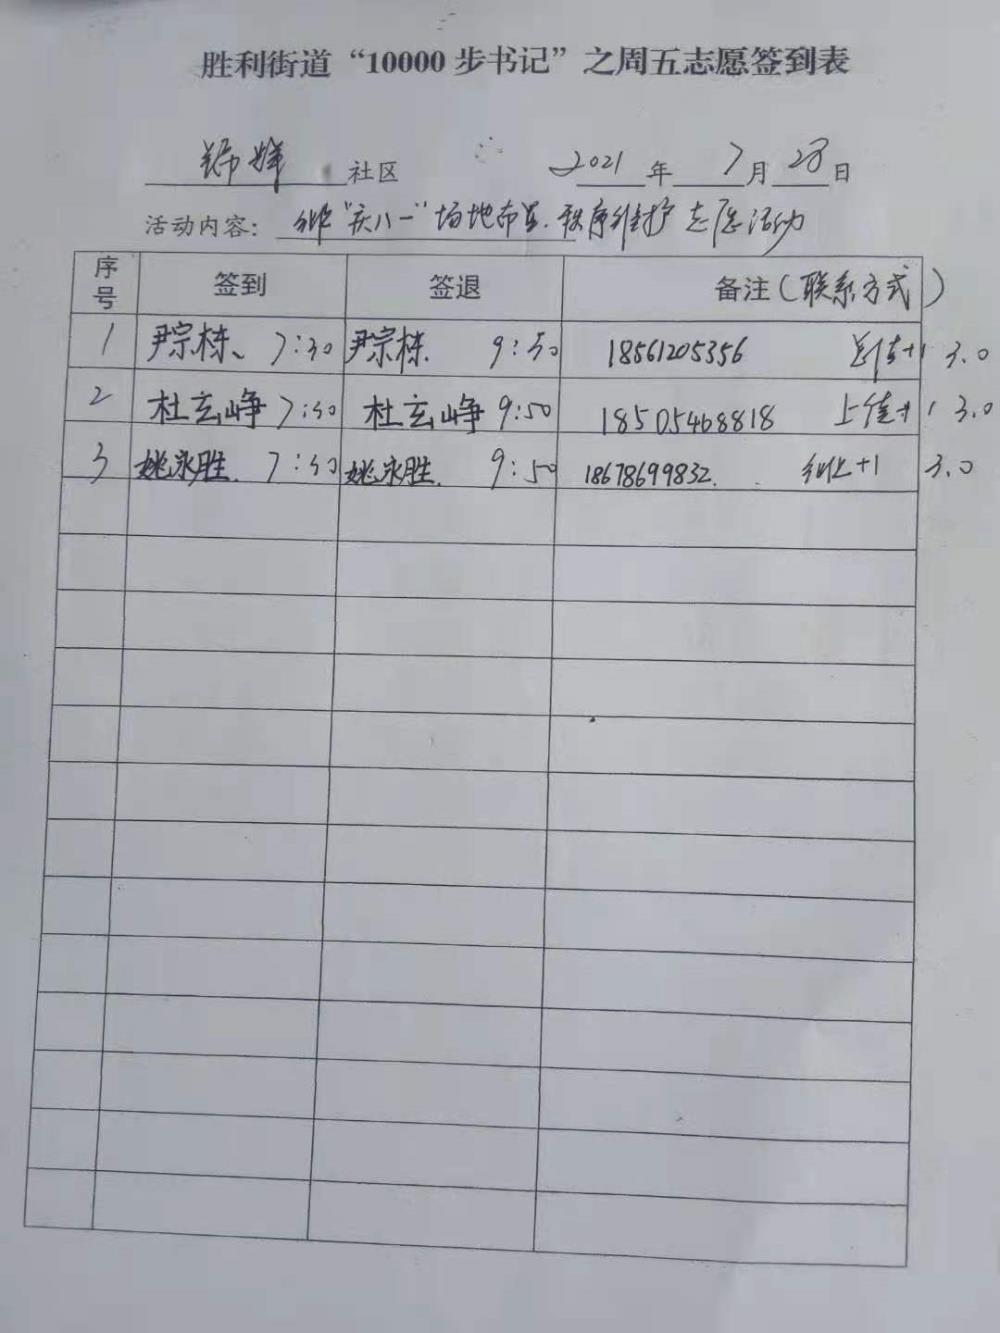 胜利街道“10000步书记”之周五志愿签到表
锦华 社区 2021 年 7 月 28 日
活动内容: “庆八一”场地布置.秩序维护志愿活动
序号 签到 签退 备注(联系方式)
1 尹宗栋、 7:30 尹宗栋. 9:50 18561205356 +1 3.0
2 杜玄峥 7:30 杜玄峥 9:50 18505468818 +1 3.0
3 姚永胜. 7:30 姚永胜. 9:50 18678699832. +1 3.0